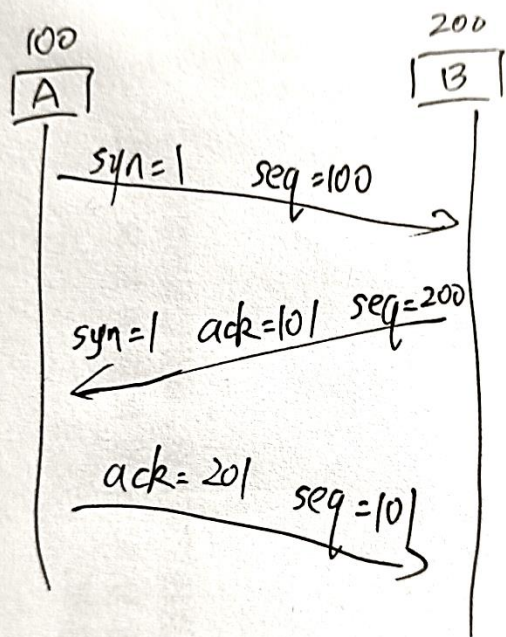 100 200
A B
syn=1 seq=100
syn=1 ack=101 seq=200
ack=201 seq=101